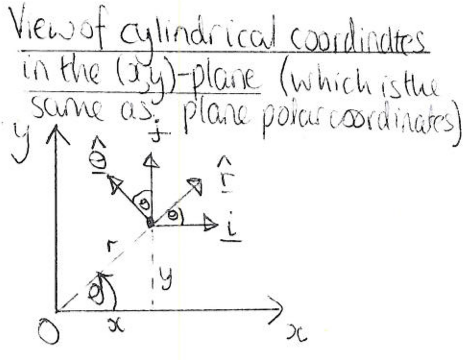 View of cylindrical coordinates
in the (x,y)-plane (which is the
same as plane polar coordinates)
y
j
θ̂
r̂
θ
θ
i
r
y
θ
O
x
x